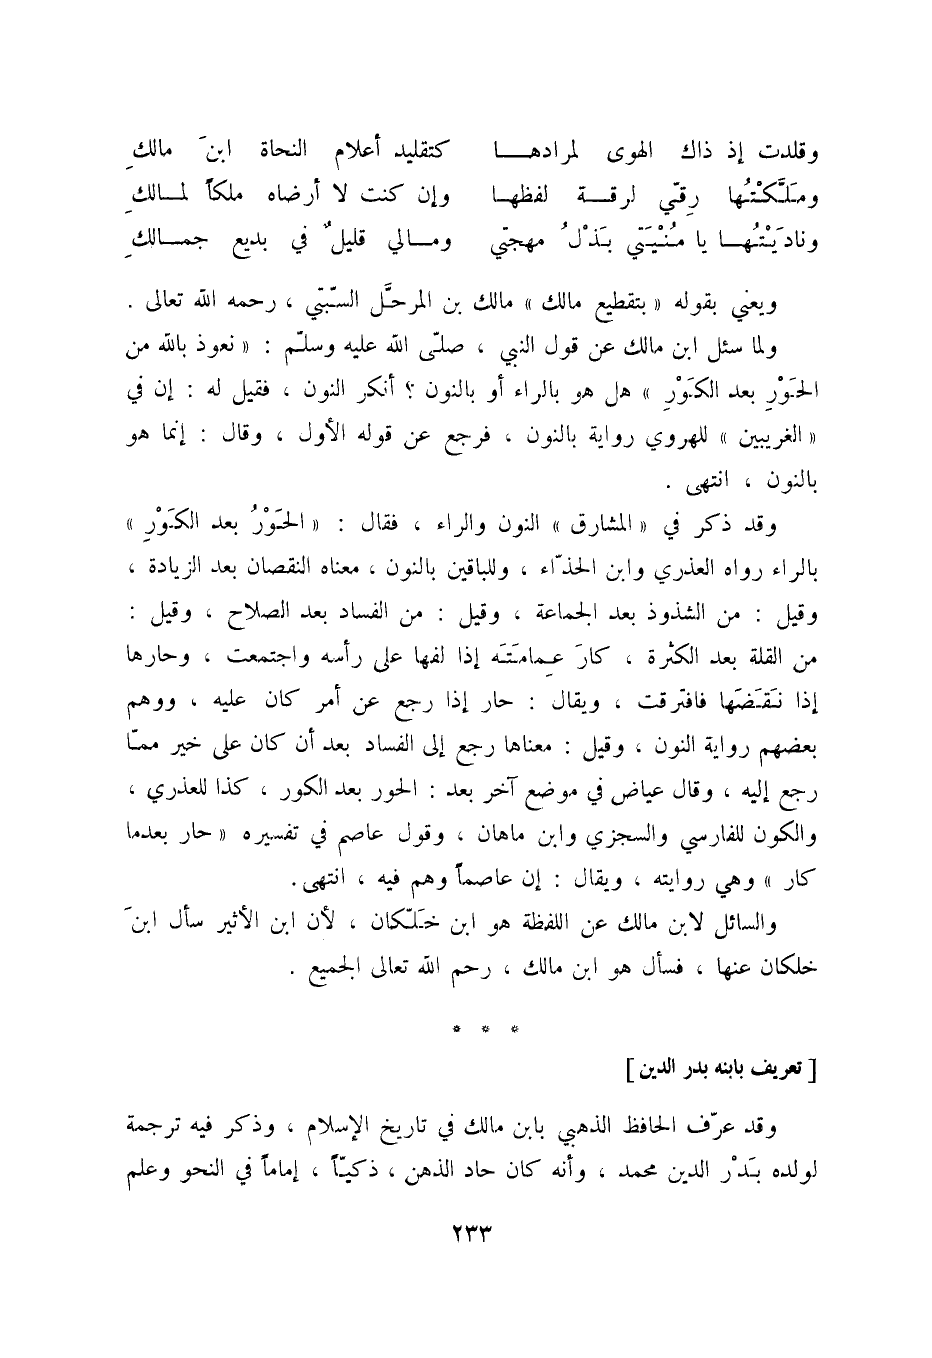 وقلدت إذ ذاك الهوى لمرادهـــا كتقليد أعلام النحاة ابنَ مالكِ
ومَلَّكْتُها رِقّي لرقـــة لفظهـا وإن كنت لا أرضاه ملكاً لمـالكِ
ونادَيْتُهـا يا مُنْيَتي بَذْلُ مهجتي ومـالي قليلٌ في بديع جمـالكِ
ويعني بقوله « بتقطيع مالك » مالك بن المرحَّل السّبّتي ، رحمه الله تعالى .
ولما سئل ابن مالك عن قول النبي ، صلّى الله عليه وسلّم : « نعوذ بالله من
الحَوْرِ بعد الكَوْرِ » هل هو بالراء أو بالنون ؟ أنكر النون ، فقيل له : إن في
« الغريبين » للهروي رواية بالنون ، فرجع عن قوله الأول ، وقال : إنما هو
بالنون ، انتهى .
وقد ذكر في « المشارق » النون والراء ، فقال : « الحَوْرُ بعد الكَوْرِ »
بالراء رواه العذري وابن الحذّاء ، وللباقين بالنون ، معناه النقصان بعد الزيادة ،
وقيل : من الشذوذ بعد الجماعة ، وقيل : من الفساد بعد الصلاح ، وقيل :
من القلة بعد الكثرة ، كارَ عِمامَتَه إذا لفها على رأسه واجتمعت ، وحارها
إذا نَقَضَها فافترقت ، ويقال : حار إذا رجع عن أمر كان عليه ، ووهم
بعضهم رواية النون ، وقيل : معناها رجع إلى الفساد بعد أن كان على خير ممّا
رجع إليه ، وقال عياض في موضع آخر بعد : الحور بعد الكور ، كذا للعذري ،
والكون للفارسي والسجزي وابن ماهان ، وقول عاصم في تفسيره « حار بعدما
كار » وهي روايته ، ويقال : إن عاصماً وهم فيه ، انتهى.
والسائل لابن مالك عن اللفظة هو ابن خَلّكان ، لأن ابن الأثير سأل ابنَ
خلكان عنها ، فسأل هو ابن مالك ، رحم الله تعالى الجميع .
* * *
[ تعريف بابنه بدر الدين ]
وقد عرّف الحافظ الذهبي بابن مالك في تاريخ الإسلام ، وذكر فيه ترجمة
لولده بَدْر الدين محمد ، وأنه كان حاد الذهن ، ذكيّاً ، إماماً في النحو وعلم
٢٣٣